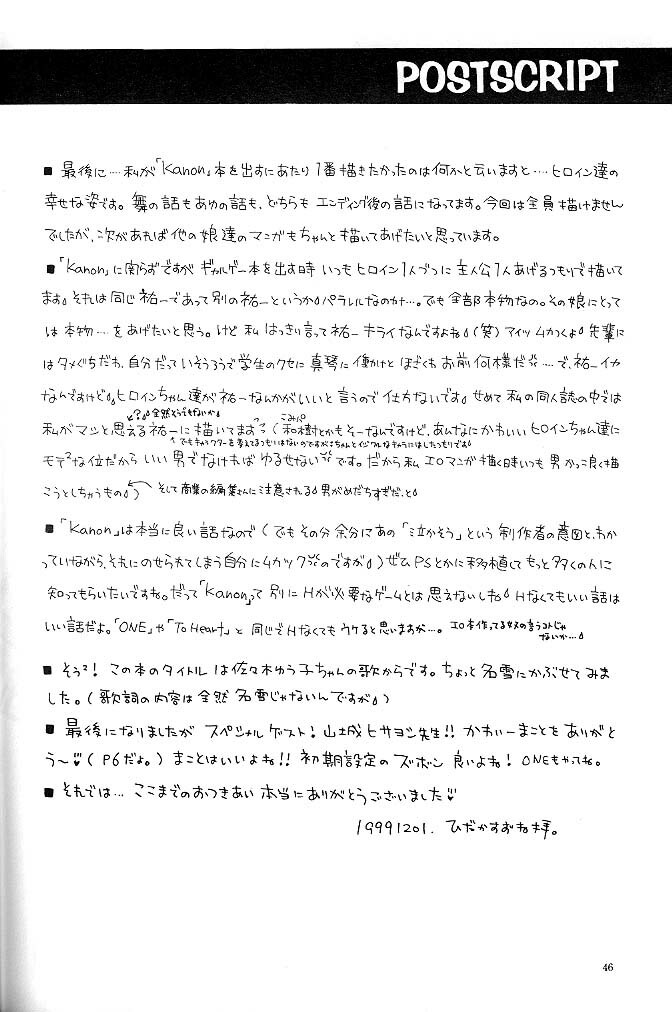 POSTSCRIPT
■ 最後に…私が「Kanon」本を出すにあたり1番描きたかったのは何かと云いますと‥‥ヒロイン達の
幸せな姿です。舞の話もあゆの話も、どちらも エンディング後の話になってます。今回は全員描けません
でしたが、次があれば他の娘達のマンガもちゃんと描いてあげたいと思っています。
■「Kanon」に関らずですが ギャルゲー本を出す時 いつもヒロイン1人づつに主人公1人あげるつもりで描いて
ます。それは同じ祐一であって別の祐一というか パラレルなのか十…。でも全部本物なの。その娘にとって
は本物…をあげたいと思う。けど 私 はっきり言って祐一 キライなんですよね(笑)アイツムカつくよ 先輩に
はタメぐちだわ、自分だっていそうろうで学生のクセに 真琴に働かけとほざくわ お前何様だ …で、祐一イカ
なんですけど ヒロインちゃん達が祐一なんかがいいと言うので仕方ないです せめて私の同人誌の中では
?全然そうでもないか
私がマシと思える祐一に描いてます (和樹とかもそーなんですけど、あんなにかわいいヒロインちゃん達に
こみパ
でもキャラクターを考えてるつもりはないのですがちゃんとイジワルなキャラにはしたつもりです
モテ²な位だから いい男でなければ ゆるせない です。だから私 エロマンガ描く時いつも 男かっこ良く描
こうとしちゃうもの )
そして商業の編集さんに注意される 男がめだちすぎだ、と
■「Kanon」は本当に良い話なので(でもその分余分にあの「泣かそう」という 制作者の意図と、わか
っていながら、それにのせられてしまう自分にムカック のですが )ぜひPSとかに移植してもっと多くの人に
知ってもらいたいですね。だって「Kanon」って 別にHが必要なゲームとは思えないしね Hなくてもいい話は
いい話だよ。「ONE」や「To Heart」と同じでHなくてもウケると思いますが…。
エロ本作ってる奴の言うコトじゃ
ないか…
■ そう²!この本のタイトルは佐々木ゆう子ちゃんの歌からです。ちょっと名雪にかぶせてみま
した。(歌詞の内容は全然 名雪じゃないんですが )
■ 最後になりましたが スペシャルゲスト!山城ヒサヨシ先生!! かわいーまことをありがと
う〜♡(P6だよ。)まことはいいよね!! 初期設定のズボン 良いよね! ONEもやってね。
■ それでは…ここまでのおつきあい本当にありがとうございました♡
19991201. ひだかすおね拝。
46